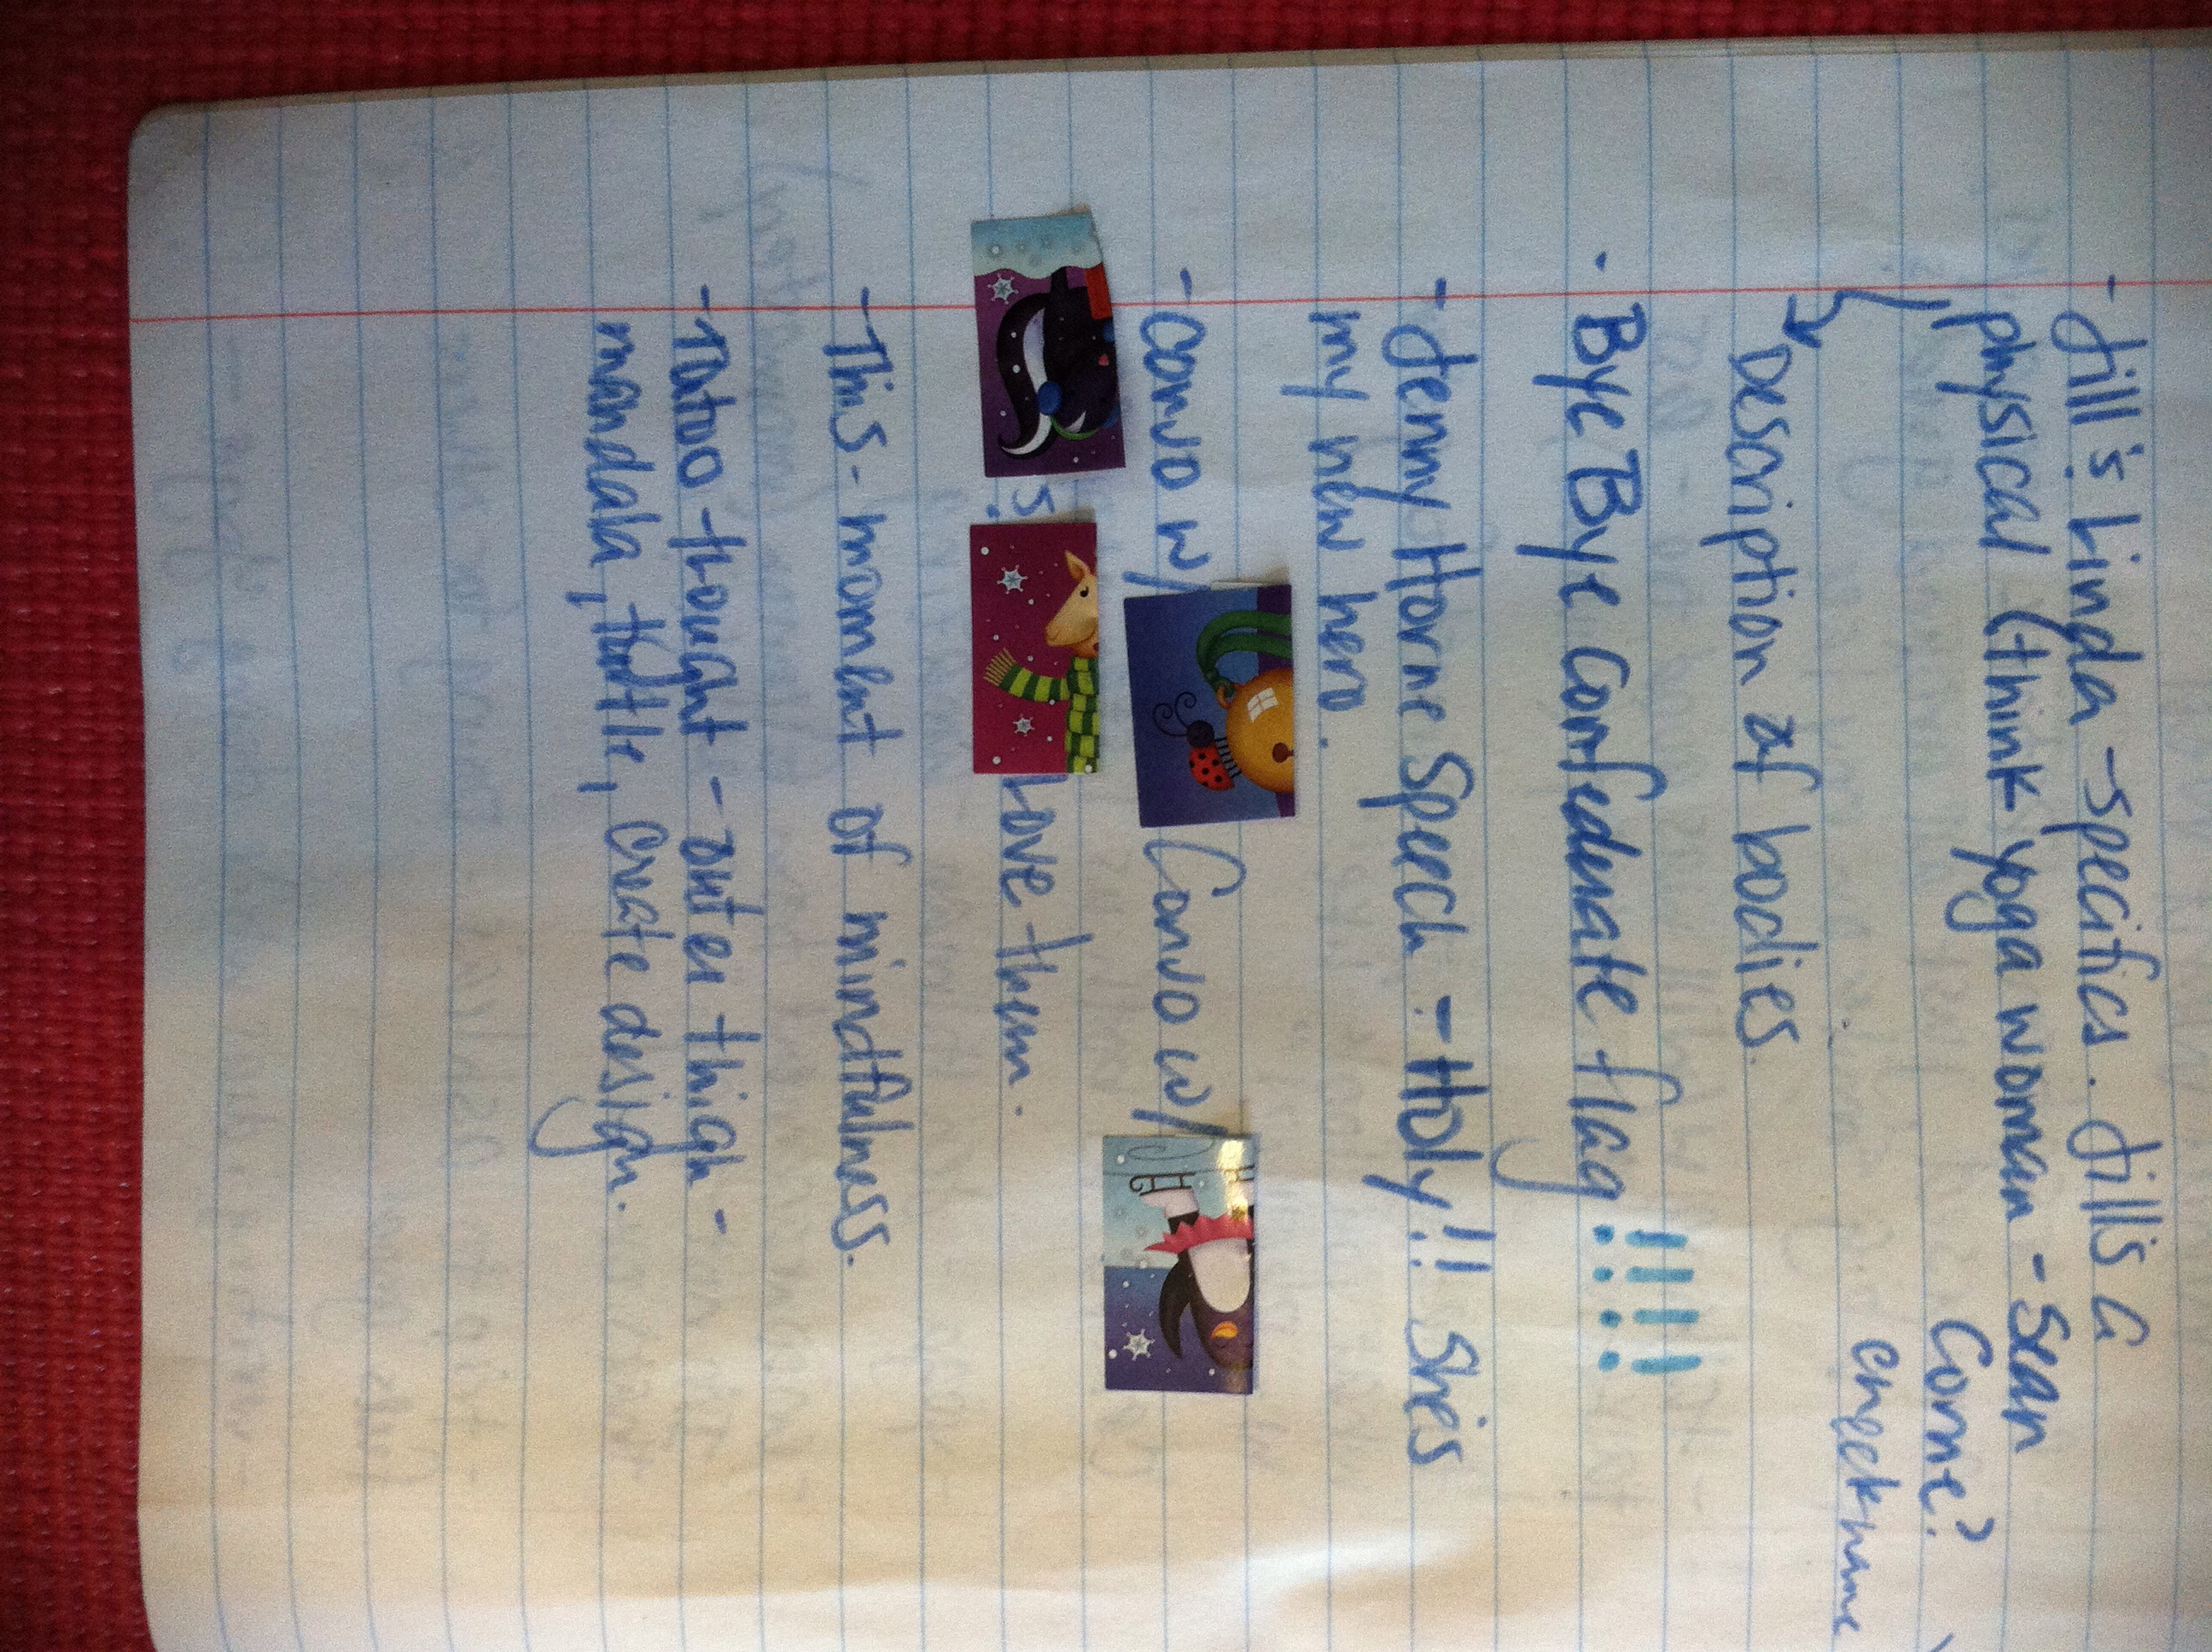 - Jill's Linda - specifics. Jill's a
physical (think yoga woman - Sean
Corne?
check name
Description of bodies.
- Bye Bye Confederate flag !!!!
- Jenny Horne Speech - Holy!! She's
my new hero.
- Convo w/ Convo w/
s. Love them.
- This - moment of mindfulness.
- Tatoo thought - outer thigh -
mandala, turtle, create design.